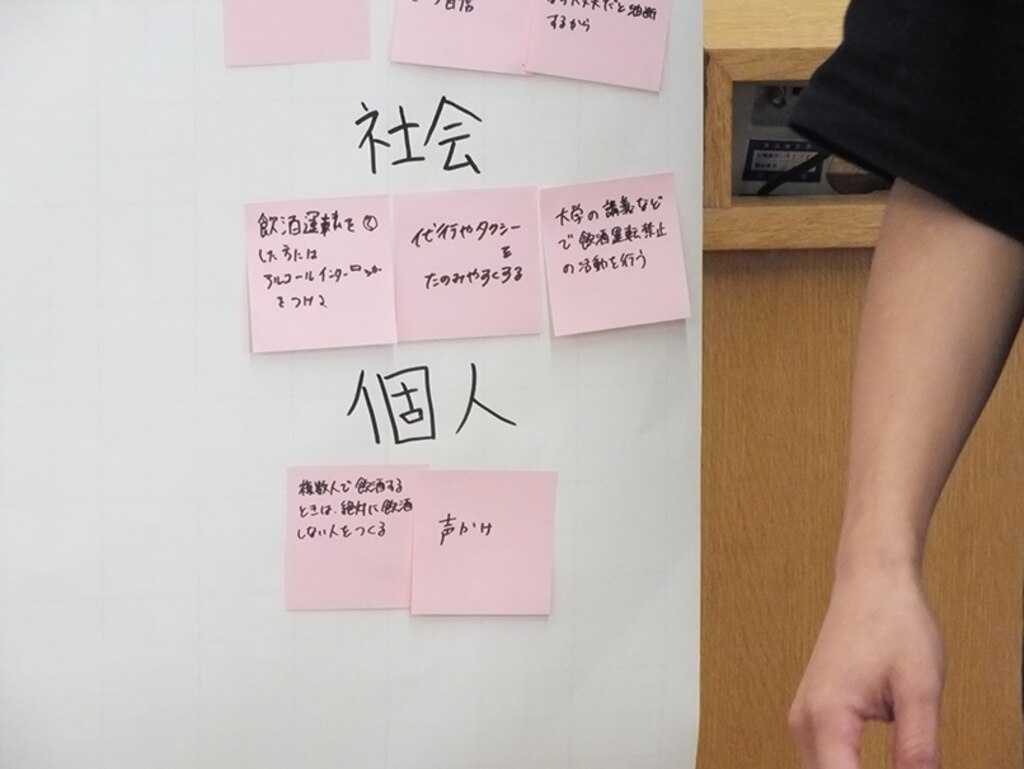 自信
大丈夫だと油断
するから
社会
飲酒運転を
した方には
アルコールインターロック
をつける
代行やタクシー
を
たのみやすくする
大学の講義など
で飲酒運転禁止
の活動を行う
個人
複数人で飲酒する
ときは、絶対に飲酒
しない人をつくる
声かけ